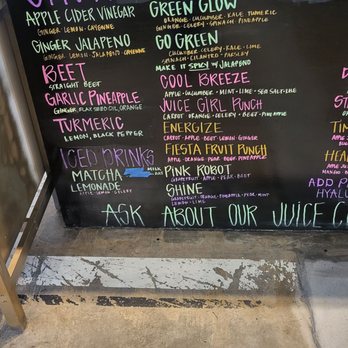 APPLE CIDER VINEGAR
GINGER · LEMON · CAYENNE
GINGER JALAPENO
GINGER · LEMON · JALAPENO · CAYENNE
BEET
STRAIGHT BEET
GARLIC PINEAPPLE
GINGER, FLAX SEED OIL, ORANGE
TURMERIC
LEMON, BLACK PEPPER
ICED DRINKS
MATCHA
LEMONADE
APPLE · LEMON · CELERY
GREEN GLOW
ORANGE · CUCUMBER · KALE · TURMERIC
GINGER · CELERY · SPINACH · PINEAPPLE
GO GREEN
CUCUMBER · CELERY · KALE · LIME
SPINACH · CILANTRO · PARSLEY
MAKE IT SPICY W/ JALAPENO
COOL BREEZE
APPLE · CUCUMBER · MINT · LIME · SEA SALT · LIME
JUICE GIRL PUNCH
CARROT · ORANGE · CELERY · BEET · PINEAPPLE
ENERGIZE
CARROT · APPLE · BEET · LEMON · GINGER
FIESTA FRUIT PUNCH
APPLE · ORANGE · PEAR · BEET · PINEAPPLE
PINK ROBOT
GRAPEFRUIT · APPLE · PEAR · BEET
SHINE
PINEAPPLE · PEAR · MINT
LEMON · LIME
ADD
HYALU
ASK ABOUT OUR JUICE C